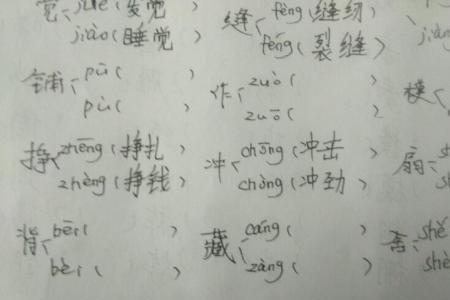 觉 jué (发觉
jiào (睡觉
缝 féng (缝纫
fèng (裂缝)
jiān
铺 pū ( )
pù ( )
作 zuò ( )
zuō ( )
模
挣 zhēng (挣扎)
zhèng (挣钱)
冲 chōng (冲击)
chòng (冲劲)
扇 sh
sh
背 bēi ( )
bèi ( )
藏 cáng ( )
zàng ( )
舍 shě
shè